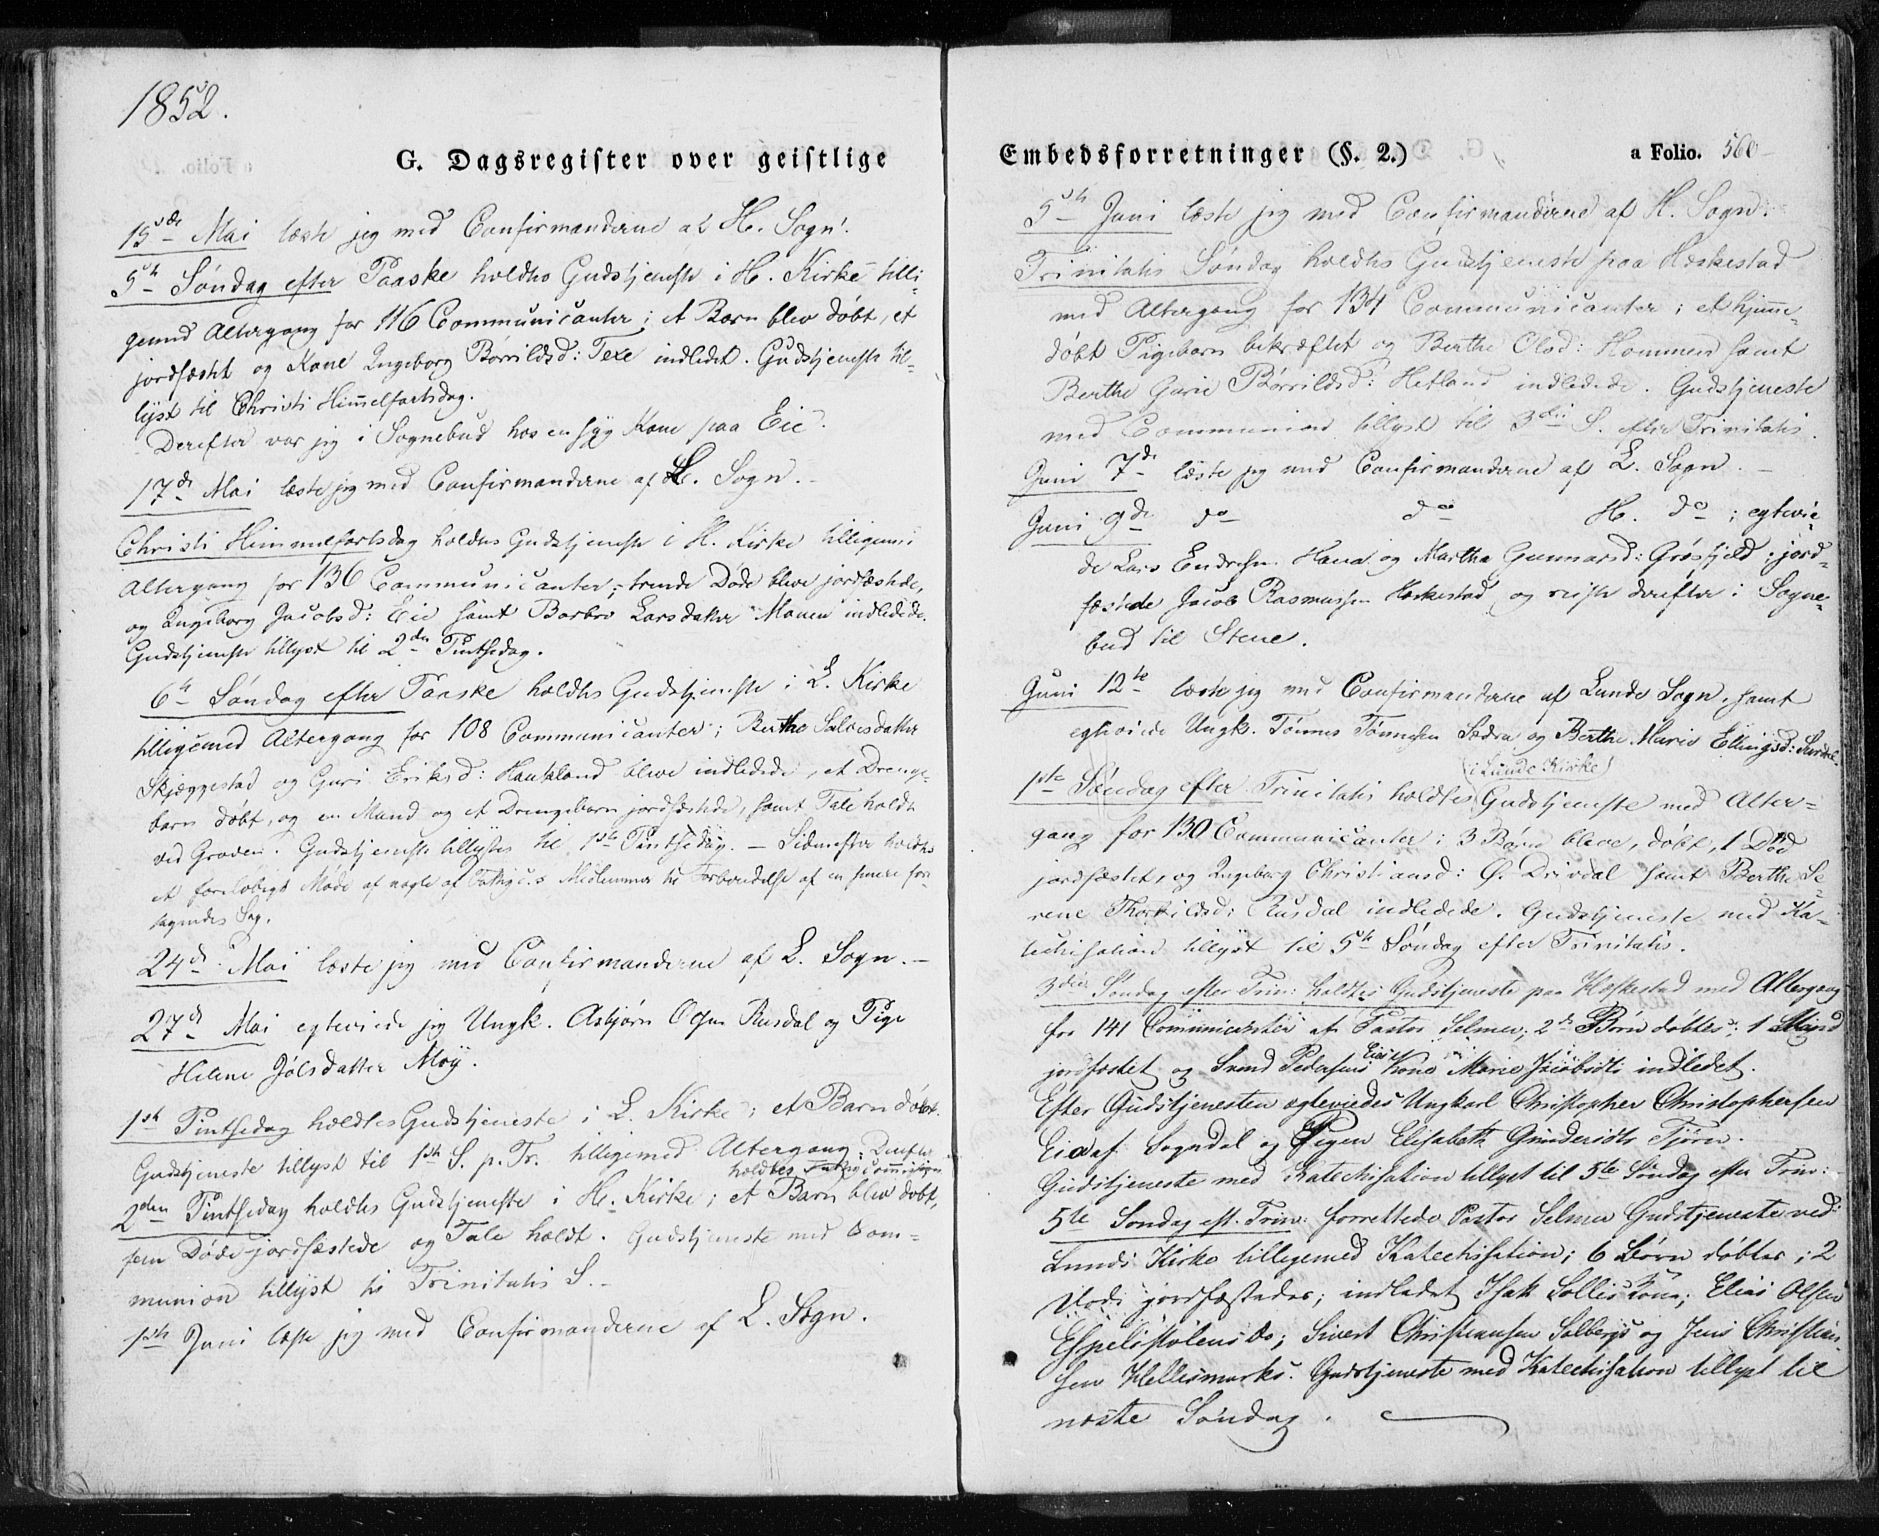 1852.
G. Dagsregister over geistlige
15de Mai læste jeg med Confirmanderne af H. Sogn.
5te Søndag efter Paaske holdtes Gudstjeneste i H. Kirke tilli-
gemed Altergang for 116 Communicanter; et Barn blev døbt, et
jordfæstet og Kone Ingeborg Børrildsd: Texe indledet. Gudstjeneste til-
lyst til Christi Himmelfartsdag.
Derefter var jeg i Sognebud hos en syg Kone paa Eie.
17de Mai læste jeg med Confirmanderne af L. Sogn.
Christi Himmelfartsdag holdtes Gudstjeneste i H. Kirke tilligemed
Altergang for 136 Communicanter; trende Døde bleve jordfæstede,
og Ingeborg Jacobsd: Eie samt Barbro Larsdatter Mauen indledede.
Gudstjeneste tillyst til 2den Pintsedag.
6te Søndag efter Paaske holdtes Gudstjeneste i L. Kirke
tilligemed Altergang for 108 Communicanter; Berthe Salvesdatter
Skjæggestad og Guri Eriksd: Haukland bleve indledede, et Drenge-
barn døbt, og en Mand og et Drengebarn jordfæstede, samt Tale holdt
ved Graven. Gudstjeneste tillystes til 1ste Pintsedag. – Sidenefter holdtes
et foreløbigt Møde af nogle af Fattigc.s Medlemmer til Forberedelse af en senere fore-
tagendes Sag.
24de Mai læste jeg med Confirmanderne af L. Sogn. –
27de Mai egteviede jeg Ungk. Asbjørn Olsen Rusdal og Pige
Helene Jólsdatter Moy.
1ste Pintsedag holdtes Gudstjeneste i L. Kirke; et Barn døbt.
Gudstjeneste tillyst til 1ste S. p. Tr. tilligemed Altergang; Derefter
holdtes Fattigcommission
2den Pintsedag holdtes Gudstjeneste i H. Kirke; et Barn blev døbt,
fem Døde jordfæstede og Tale holdt. Gudstjeneste med Com-
munion tillyst til Trinitatis S. –
1ste Juni læste jeg med Confirmanderne af L. Sogn.
Embedsforretninger (§. 2.)
a Folio. 560
5te Juni læste jeg med Confirmanderne af H. Sogn.
Trinitatis Søndag holdtes Gudstjeneste paa Heskestad
med Altergang for 134 Communicanter; et hjemme-
døbt Pigebarn bekræftet og Berthe Olsd: Hommen samt
Berthe Garie Børrildsd: Hetland indledede. Gudstjeneste
med Communion tillyst til 3die S. efter Trinitatis.
Juni 7de læste jeg med Confirmanderne af L. Sogn. –
Juni 9de do do H. do; egtevie-
de Lars Endresen Hana og Martha Gunnarsd: Grøsfjeld; jord-
fæstede Jacob Rasmussen Heskestad og reiste derefter i Sogne-
bud til Stene.
Juni 12te læste jeg med Confirmanderne af Lunde Sogn, samt
egteviede Ungk. Tønnes Tønnesen Sædra og Berthe Marie Ellingsd: Surdal.
(i Lunde Kirke)
1ste Søndag efter Trinitatis holdtes Gudstjeneste med Alter-
gang for 130 Communicanter; 3 Børn bleve døbt, 1 Død
jordfæstet, og Ingeborg Christiansd: Ø. Drivdal samt Berthe Se-
rene Thorkildsd: Rusdal indledede. Gudstjeneste med Ka-
techisation tillyst til 5te Søndag efter Trinitatis.
3die Søndag efter Trin: holdtes Gudstjeneste paa Heskestad med Altergang
for 141 Communicanter af Pastor Selmer; 2de Børn døbtes; 1 Mand
jordfæstet og Svend Pedersens Eies Kone Marie Jacobsdtr indledet.
Efter Gudstjenesten egteviedes Ungkarl Christopher Christophersen
Eia af Sogndal og Pigen Elisabeth Gundersdtr Tjørn.
Gudstjeneste med Katechisation tillyst til 5te Søndag efter Trin:
5te Søndag eft. Trin: forrettede Pastor Selmer Gudstjeneste ved
Lunde Kirke tilligemed Katechisation; 6 Børn døbtes; 2
Døde jordfæstedes; indledet Isak Sollis Kone; Elias Olsen
Espelistølens do; Sivert Christiansen Solbergs og Jens Christian-
sen Hellesmarks. Gudstjeneste med Katechisation tillyst til
næste Søndag.